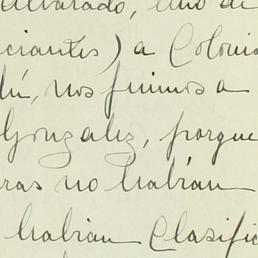 Alvarado, uno de
ciantes) a Colonia
nos fuimos a
Gonzalez, porque
ras no habian
habian Clasific